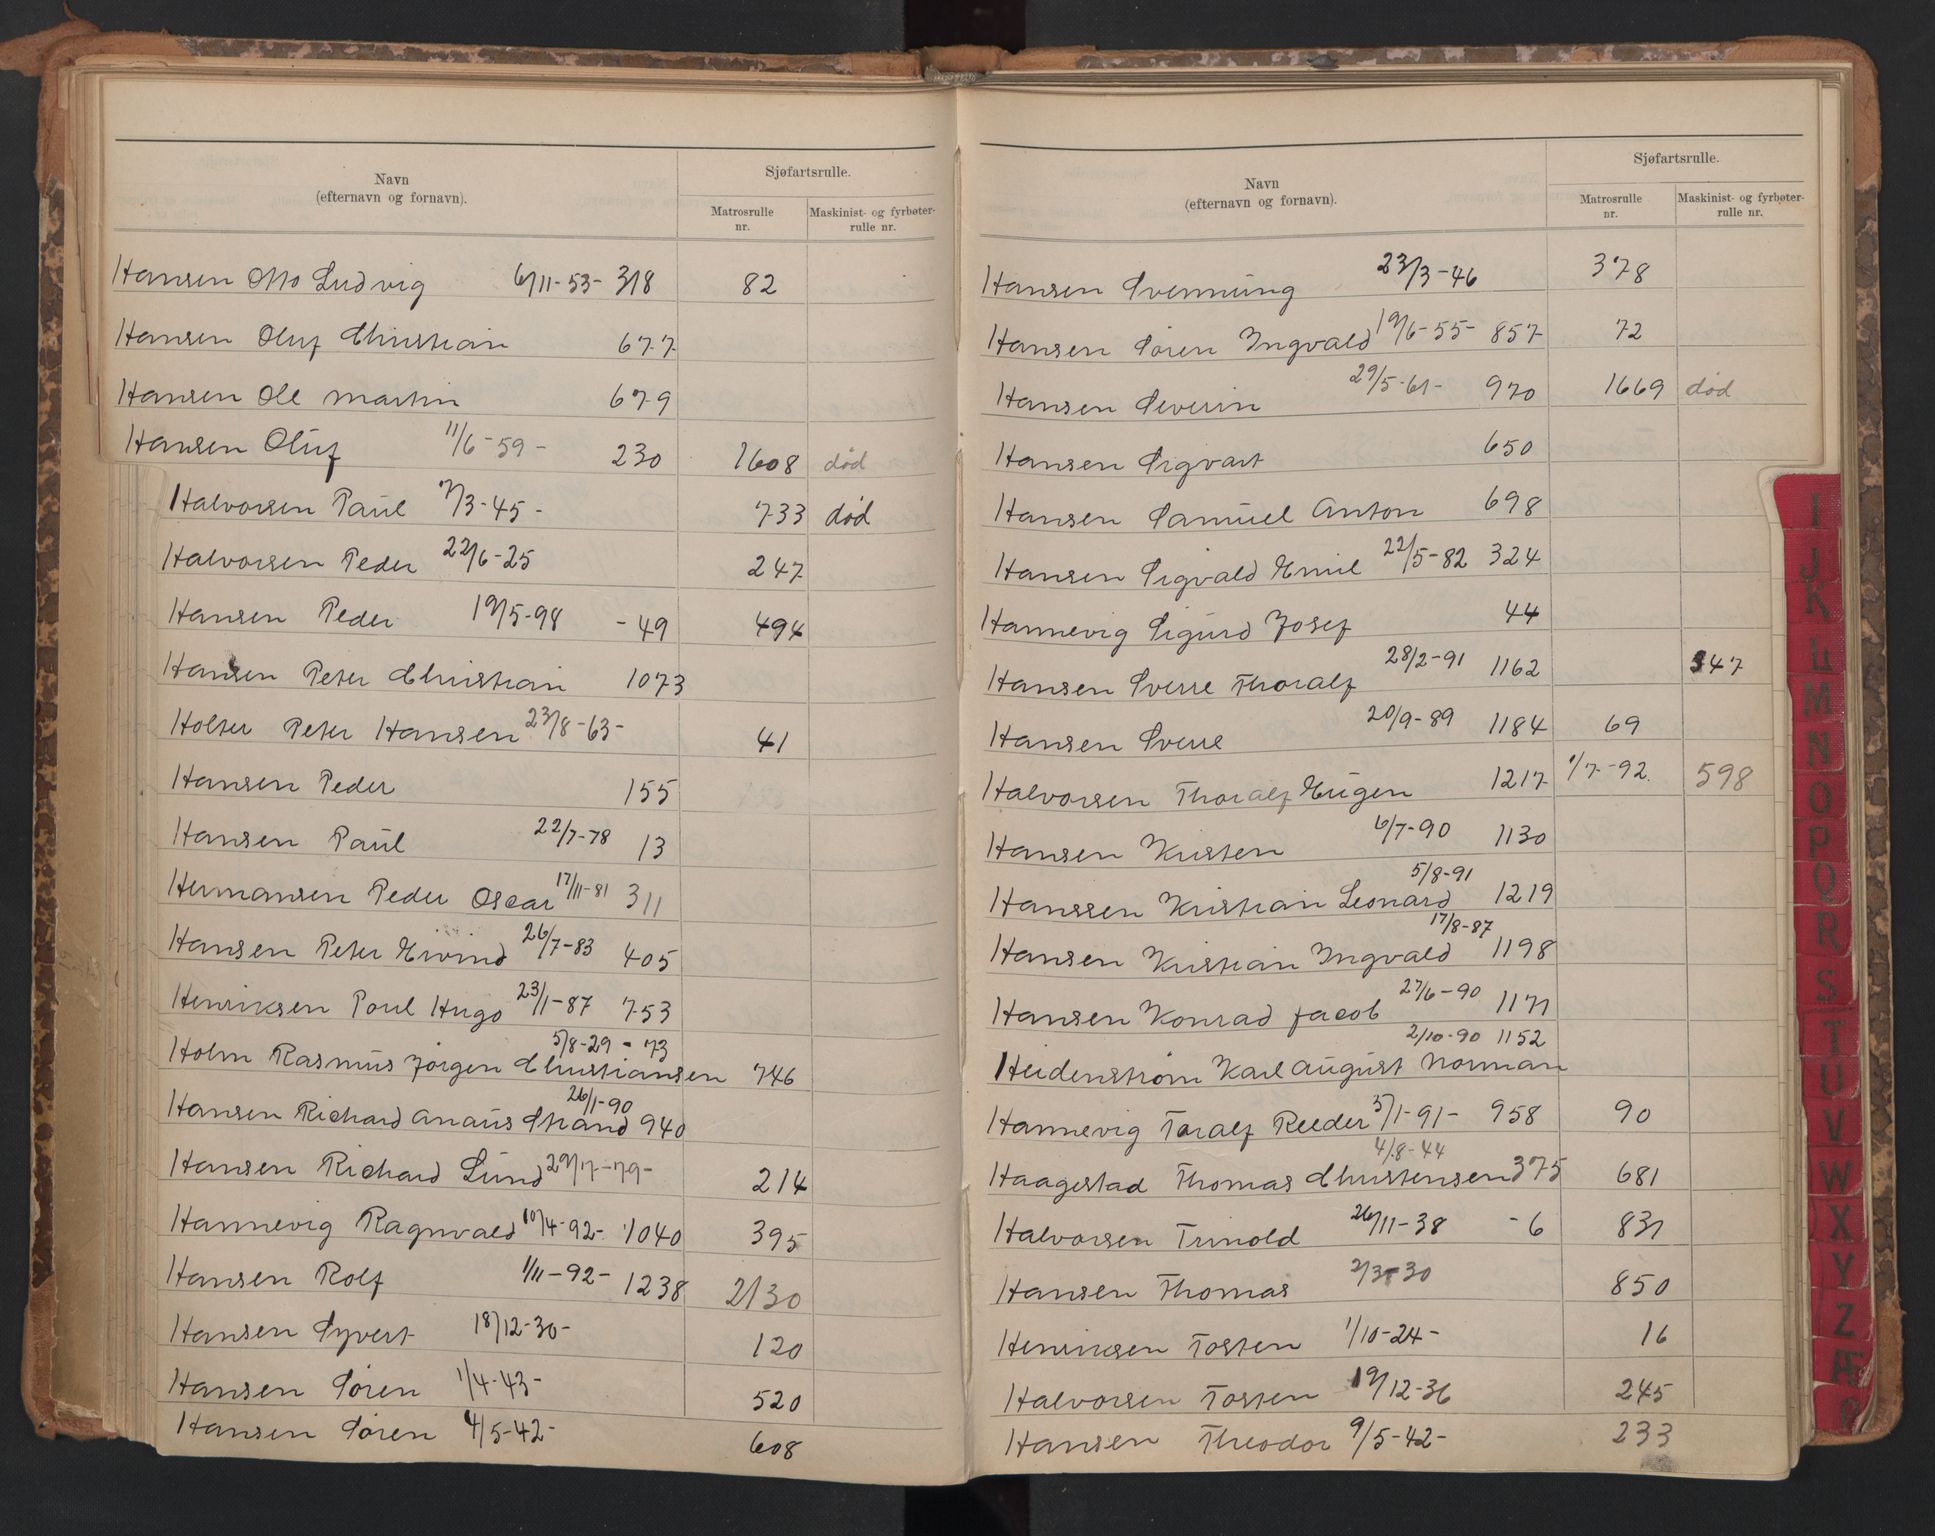 Navn
(efternavn og fornavn).
Sjøfartsrulle.
Matrosrulle nr.
Maskinist- og fyrbøter-rulle nr.
Hansen Otto Ludvig 6/11-53- 318 82
Hansen Oluf Christian 677
Hansen Ole Martin 679
Hansen Oluf 11/6-59- 230 1608 død
Halvorsen Paul 7/3-45- 733 død
Halvorsen Peder 22/6-25 247
Hansen Peder 19/5-98 -49 494
Hansen Peter Christian 1073
Holter Peter Hansen 23/8-63- 41
Hansen Peder 155
Hansen Paul 22/7-78 13
Hermansen Peder Oscar 17/11-81 311
Hansen Peter Eivind 26/7-83 405
Henriksen Poul Hugo 23/1-87 753
5/8-29 - 73
Holm Rasmus Jörgen Christiansen 746
26/1-90
Hansen Richard Anaus Strand 940
Hansen Richard Lund 29/7-79- 214
Hannevig Ragnvald 10/4-92- 1040 395
Hansen Rolf 1/11-92- 1238 2130
Hansen Syvert 18/12-30- 120
Hansen Sören 1/4-43- 520
Hansen Sören 4/5-42- 608
Navn
(efternavn og fornavn).
Sjøfartsrulle.
Matrosrulle nr.
Maskinist- og fyrbøter-rulle nr.
Hansen Svennung 23/3-46 378
Hansen Sören Ingvald 19/6-55- 857 72
Hansen Severin 29/5-61- 970 1669 død
Hansen Sigvart 650
Hansen Samuel Anton 698
Hansen Sigvald Emil 22/5-82 324
Hannevig Sigurd Josef 44
Hansen Sverre Thoralf 28/2-91 1162 347
Hansen Sverre 20/9-89 1184 69
Halvorsen Thoralf Eugen 1217 1/7-92. 598
Hansen Kristen 6/7-90 1130
5/8-91
Hanssen Kristian Leonard 1219
17/8-87
Hansen Kristian Ingvald 1198
Hansen Konrad Jacob 27/6-90 1171
2/10-90 1152
Heidenstrøm Karl August Norman
Hannevig Toralf Reeder 5/1-91- 958 90
4/8-44
Haagestad Thomas Christensen 375 681
Halvorsen Trinold 26/11-38 -6 831
Hansen Thomas 2/3-30 850
Henriksen Tosten 1/10-24- 16
Halvorsen Tosten 19/12-36 245
Hansen Theodor 9/5-42- 233
I
J
K
L
M
N
O
P
Q
R
S
T
U
V
W
X
Y
Z
Æ
Ø